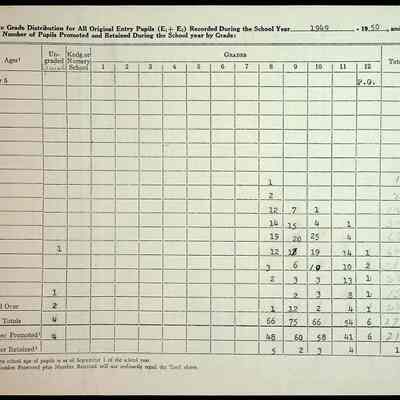 e Grade Distribution for All Original Entry Pupils (E₁+ E₂) Recorded During the School Year 1949 - 1950, and
Number of Pupils Promoted and Retained During the School year by Grade:
Ages¹ Un-graded Kndg. or Nursery School Grades Tot
1 2 3 4 5 6 7 8 9 10 11 12
r 5 P.G.
1
2
12 7 1
14 15 4 1
19 20 25 4
1 12 19 14 1
3 6 10 2
2 3 3 13 1
1 2 3 8 1
d Over 2 1 12 2 4 1
Totals 4 66 75 66 54 6
er Promoted² 4 48 60 58 41 6
er Retained² 5 2 3 4 1
school age of pupils is as of September 1 of the school year.
Number Promoted plus Number Retained will not ordinarily equal the Total above.